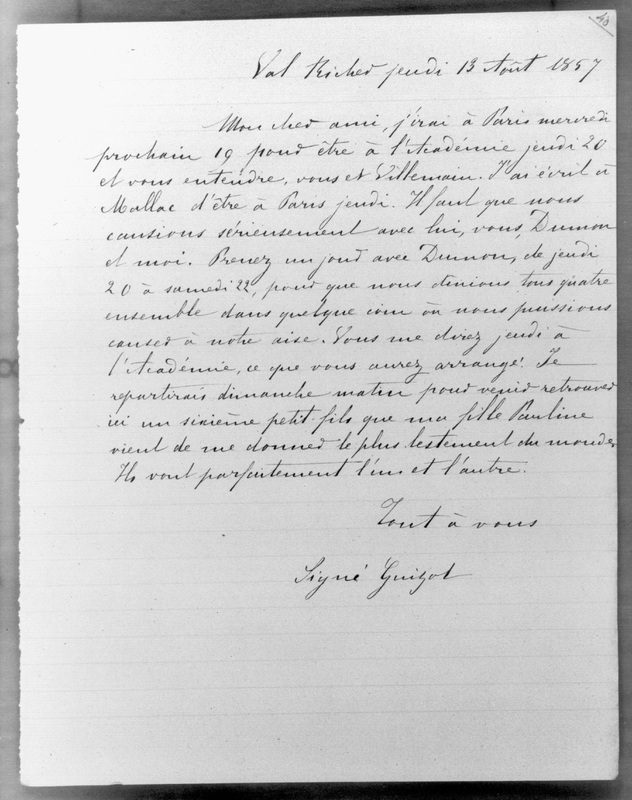 40
Val Richer jeudi 13 Août 1857
Mon cher ami, j'irai à Paris mercredi
prochain 19 pour être à l'Académie jeudi 20
et vous entendre, vous et Villemain. J'ai écrit à
Mallac d'être à Paris jeudi. Il faut que nous
causions sérieusement avec lui, vous, Dumon
et moi. Prenez un jour avec Dumon, de jeudi
20 à samedi 22, pour que nous dinions tous quatre
ensemble dans quelque coin où nous puissions
causer à notre aise. Vous me direz jeudi à
l'Académie, ce que vous aurez arrangé. Je
repartirais dimanche matin pour venir retrouver
ici un sixième petit-fils que ma fille Pauline
vient de me donner le plus lestement du monde.
Ils vont parfaitement l'un et l'autre.
Tout à vous
Signé Guizot